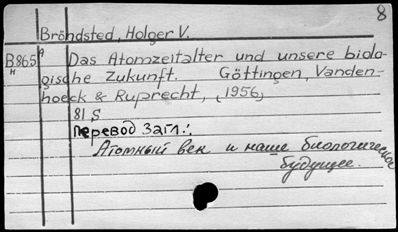 8
Bröndsted, Holger V.
B865 A Das Atomzeitalter und unsere biolo-
H gische Zukunft. Göttingen, Vanden-
hoeck & Ruprecht, (1956)
81 S
Перевод загл.:
Атомный век и наше биологическое
будущее.